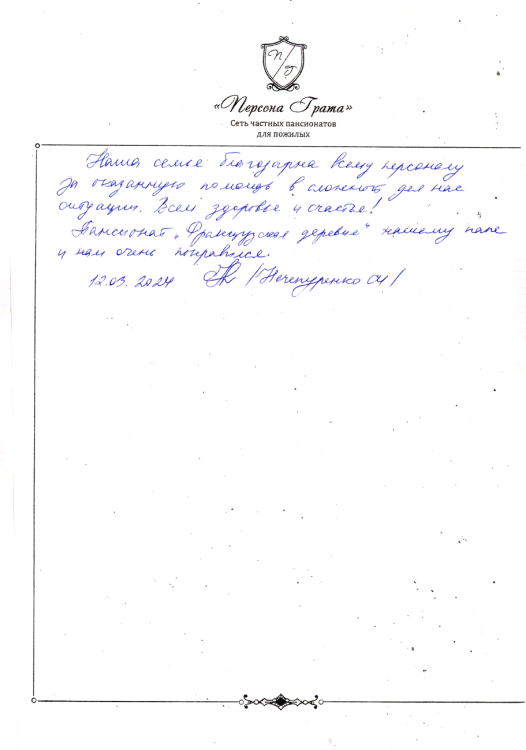 П/Г
«Персона Грата»
Сеть частных пансионатов
для пожилых
Наша семья благодарна всему персоналу
за оказанную помощь в сложной для нас
ситуации. Всем здоровья и счастья!
Пансионат „Французская деревня“ нашему папе
и нам очень понравился.
12.03.2024 /Нечепуренко СИ/